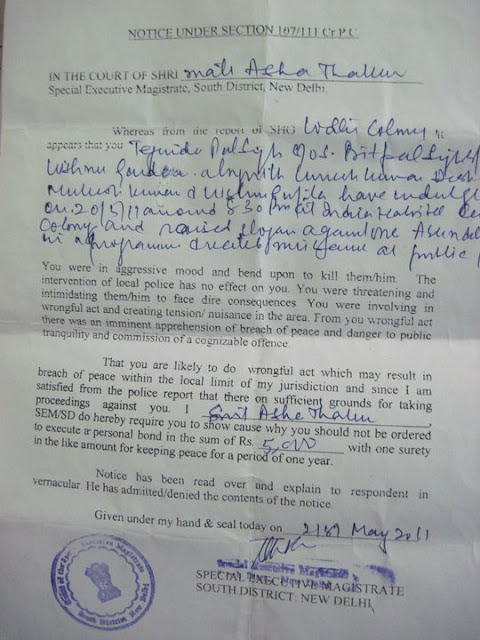 NOTICE UNDER SECTION 107/111 Cr.P.C
IN THE COURT OF SHRI Smt. Asha Thakur
Special Executive Magistrate, South District, New Delhi.
Whereas from the report of SHO Lodhi Colony it
appears that you
alongwith
Mukesh Kumar & have
on 20/5/11 around 8.30 at India Habitat
Colony and raised slogan against one
in a programme created at public
You were in aggressive mood and bend upon to kill them/him. The
intervention of local police has no effect on you. You were threatening and
intimidating them/him to face dire consequences. You were involving in
wrongful act and creating tension/ nuisance in the area. From you wrongful act
there was an imminent apprehension of breach of peace and danger to public
tranquility and commission of a cognizable offence.
That you are likely to do wrongful act which may result in
breach of peace within the local limit of my jurisdiction and since I am
satisfied from the police report that there on sufficient grounds for taking
proceedings against you. I Smt Asha Thakur,
SEM/SD do hereby require you to show cause why you should not be ordered
to execute a personal bond in the sum of Rs. 5,000 with one surety
in the like amount for keeping peace for a period of one year.
Notice has been read over and explain to respondent in
vernacular. He has admitted/denied the contents of the notice.
Given under my hand & seal today on 21st May 2011
Special Executive Magistrate
SPECIAL EXECUTIVE MAGISTRATE
SOUTH DISTRICT: NEW DELHI
South District New Delhi